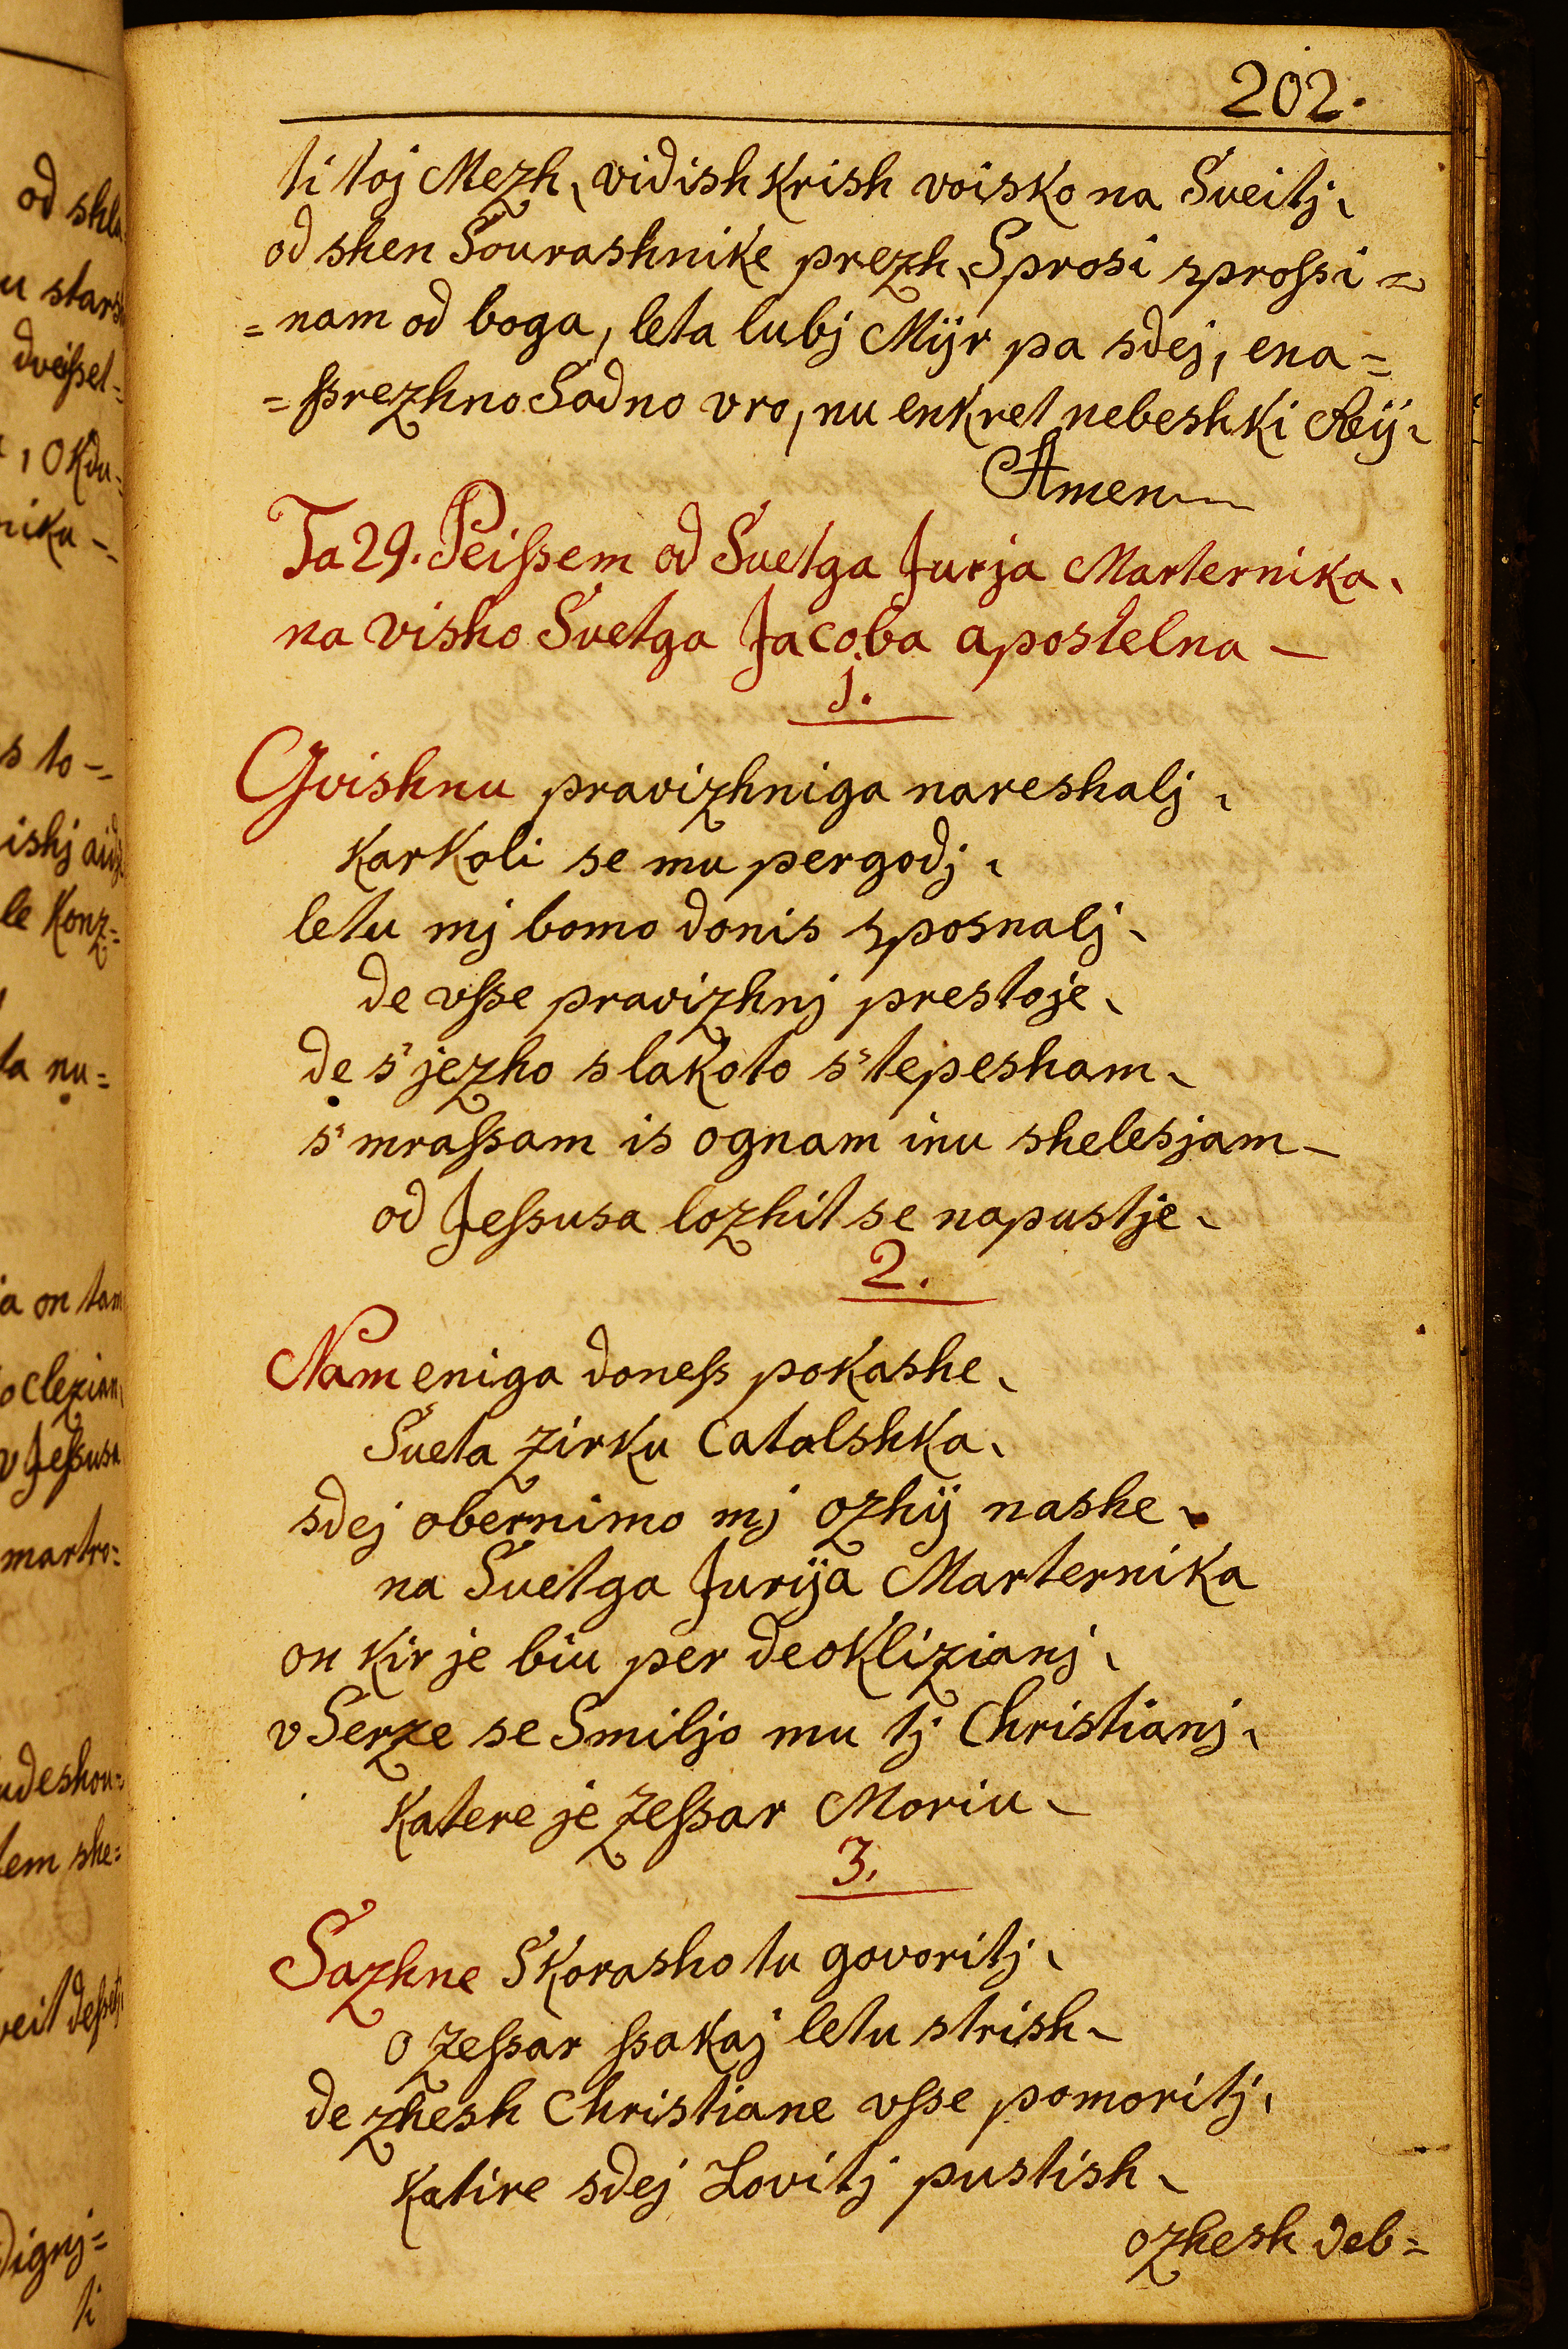 202.
ti toj Mezh, vidish krish voisko na Sveitj,
od shen Sourashnike prezh, Sprosi sprossi =
= nam od boga, leta lubj Mijr pa sdej, ena=
= ssrezhno Sadno vro, nu enkret nebeshki Reij,
Amen
Ta 29. Peissem od Svetga Jurja Marternika,
na visho Svetga Jacoba apostelna —
1.
Gvishnu pravizhniga nareshalj,
karkoli se mu pergodj,
letu mj bomo donis sposnalj,
de vsse pravizhnj prestoje,
de s' jezho s lakoto s' tepesham,
s' mrassam is ognam inu shelesjam —
od Jessusa lozhit se napustje,
2.
Nam eniga doness pokashe,
Sveta zirku Catolshka,
sdej obernimo mj ozhij nashe,
na Svetga Jurija Marternika
on kir je biu per deoklizianj,
v Serze se Smiljo mu tj Christianj,
katere je zessar Moriu,
3.
Sazhne Skorasho tu govoritj,
o zessar ssakaj letu strish,
de zhesh Christiane vsse pomoritj,
katire sdej Lovitj pustish,
ozhesh deb=
od shla
u stars
dveisset=
, Okdu=
niku =
s to =
ishj aid
le Konz=
ta nu=
ia on tam
oclezian
v Jessusa
martro=
udeshou=
tem she=
veit desset
dignj=
ti